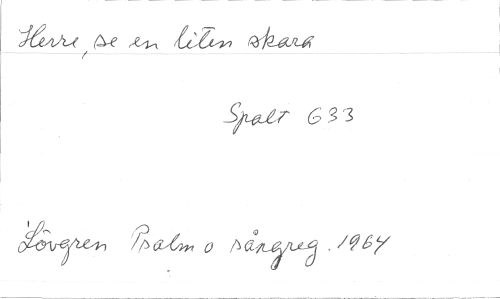 Herre, se en liten skara
Spalt 633
Lövgren Psalm o sångreg. 1964